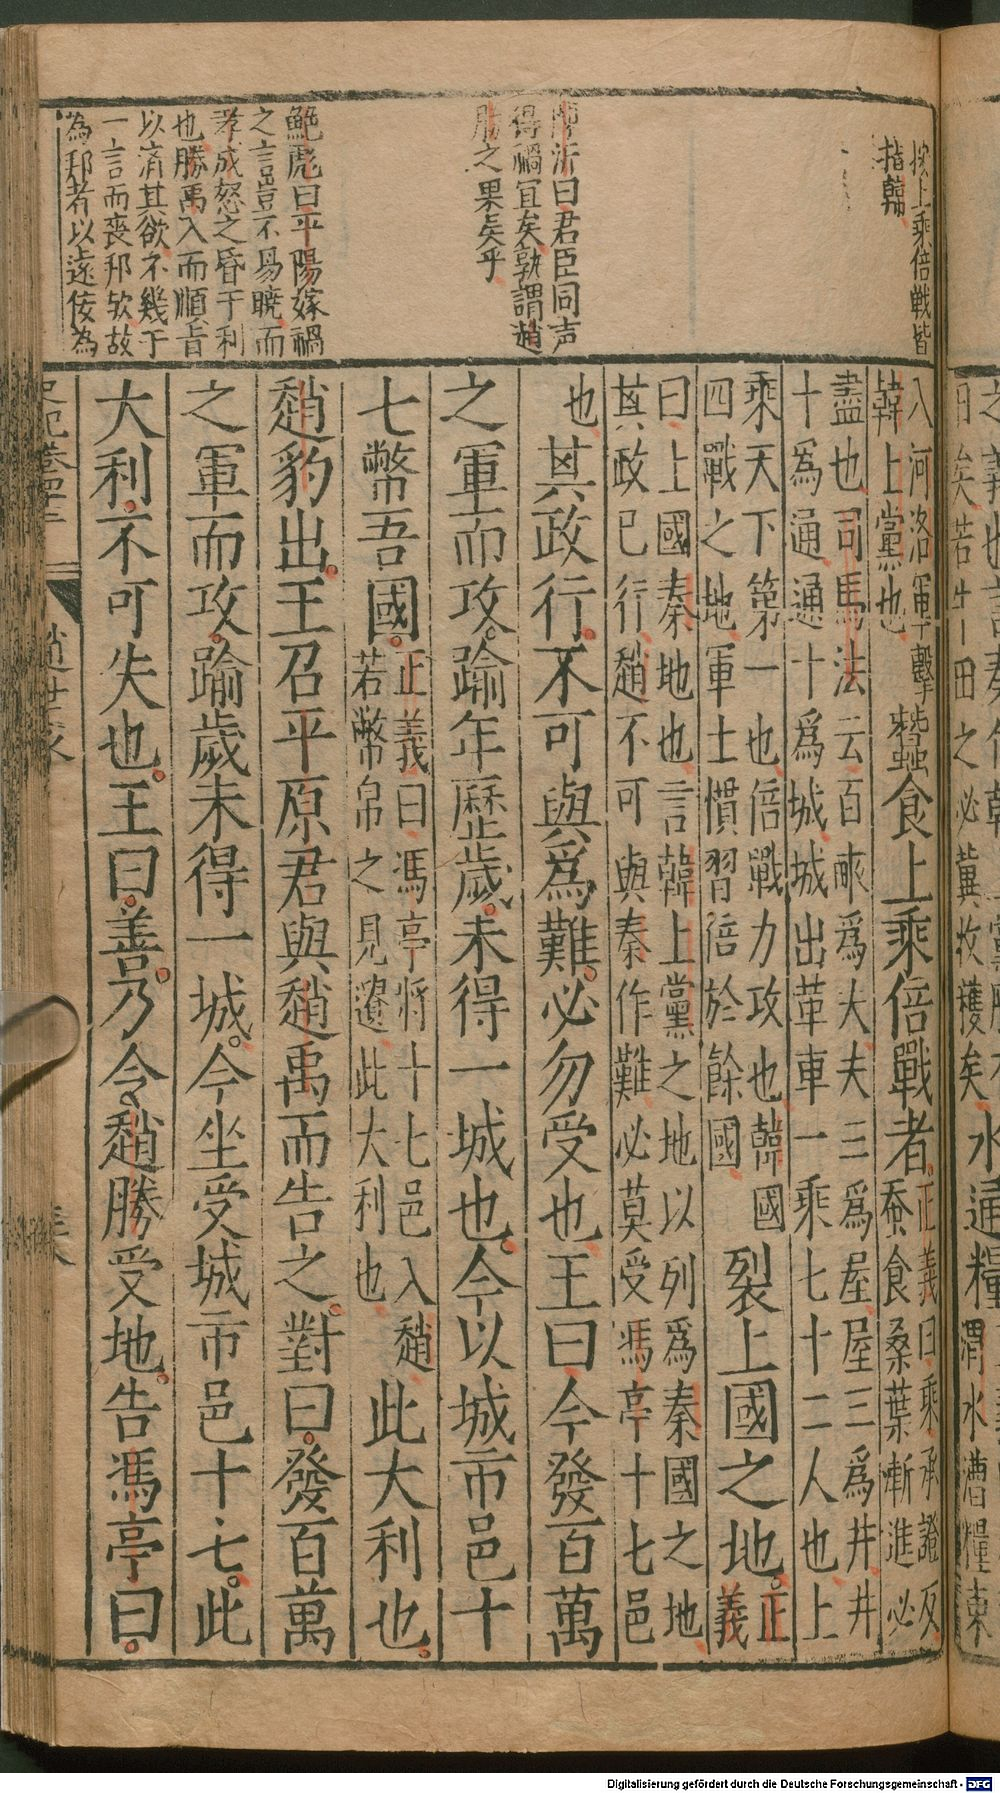 按上乘倍戰皆
指韓
得禍宜矣孰謂趙
勝之果矣乎
鮑彪曰平陽嫁禍
之言豈不易曉而
孝成怒之昏于利
也勝禹入而順旨
以濟其欲不幾于
一言而喪邦欤故
為邦者以遠佞為
入河洛軍擊
韓上黨也
蠶食上乘倍戰者
正義曰乘承證反
蚕食桑葉漸進必
盡也司馬法云百畝爲夫夫三爲屋屋三爲井井
十爲通通十爲城城出革車一乘七十二人也上
乘天下第一也倍戰力攻也韓國
四戰之地軍士慣習倍於餘國
裂上國之地
正
義
曰上國秦地也言韓上黨之地以列爲秦國之地
其政已行趙不可與秦作難必莫受馮亭十七邑
也其政行不可與爲難必勿受也王曰今發百萬
之軍而攻踰年歷歲未得一城也今以城市邑十
七幣吾國
正義曰馮亭將十七邑入趙
若幣帛之見遺此大利也
此大利也
趙豹出王召平原君與趙禹而告之對曰發百萬
之軍而攻踰歲未得一城今坐受城市邑十七此
大利不可失也王曰善乃令趙勝受地告馮亭曰
趙世家
Digitalisierung gefördert durch die Deutsche Forschungsgemeinschaft - DFG